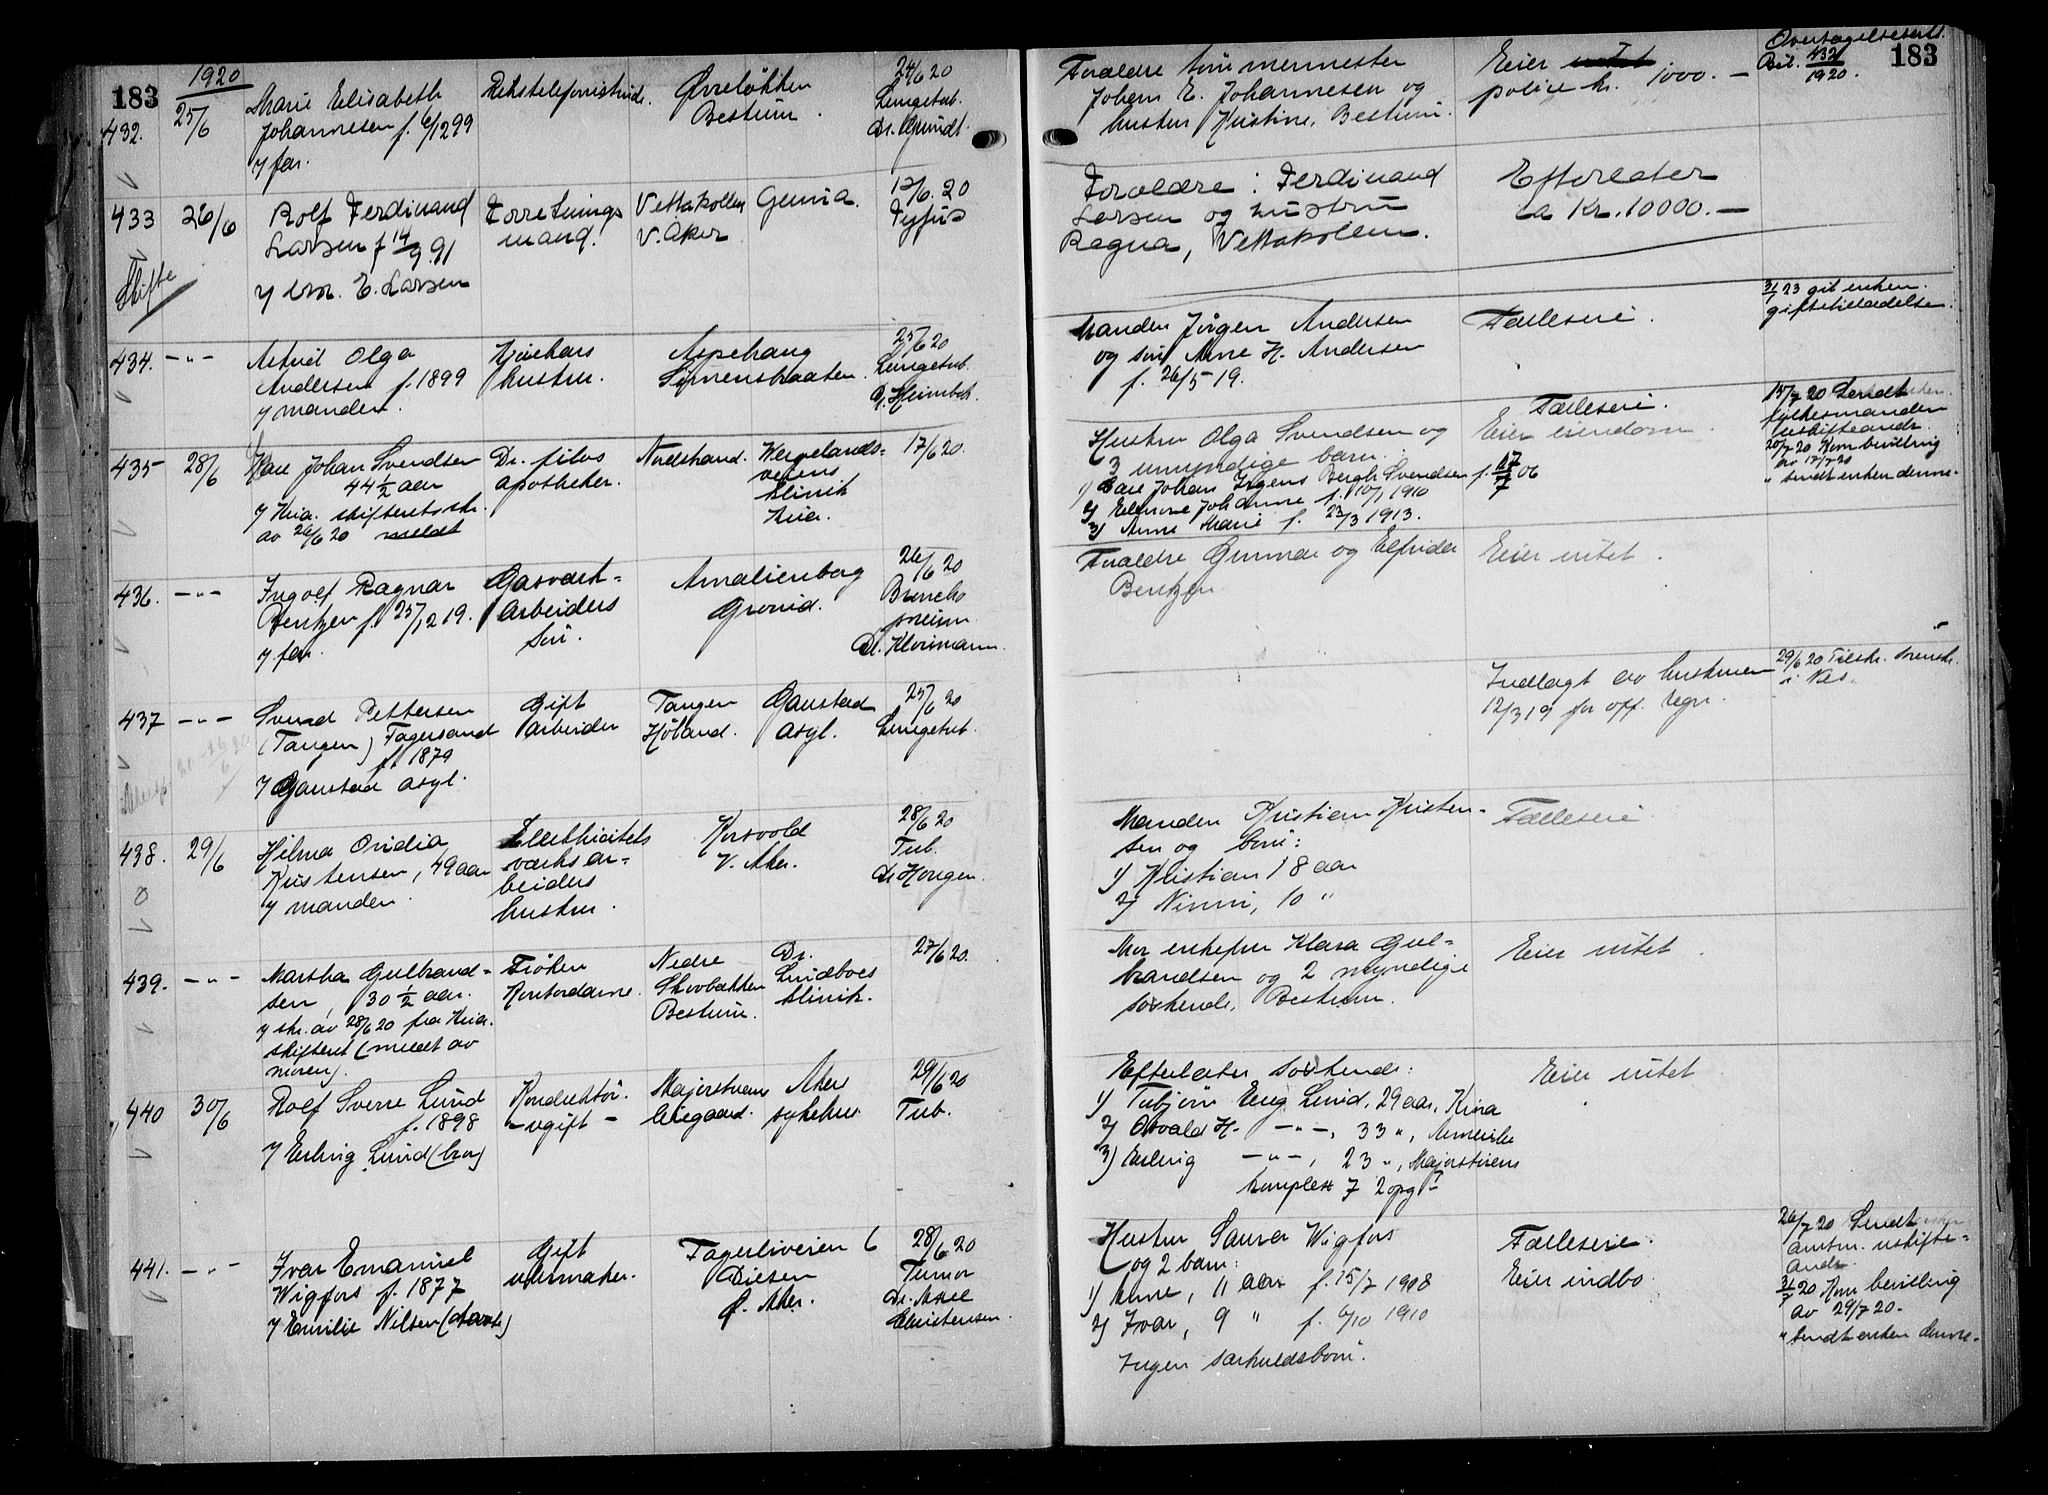 183
1920
432.
25/6
Marie Elisabeth
Johannesen f. 6/12 99
v/ far.
Rikstelefonistinde.
Øvreløkken
Bestum.
24/6 20
Lungetub.
Dr. Grundt.
Forældre tømmermester
Johan E. Johannesen og
hustru Kristine, Bestum.
Eier intet
police kr. 1000.—
Overtagelseserkl.
Bil. 432/1920.
183
433
26/6
Skifte
Rolf Ferdinand
Larsen f 14/9.91
v/ E. Larsen
Forretnings
mand.
Vettakollen
V. Aker
Genua.
12/6. 20
Tyfus
Foroldre: Ferdinand
Larsen og hustru
Ragna, Vettakollen.
Efterlater
ca Kr. 10000.—
434.
—"—
Astrid Olga
Andersen f. 1899
v/ manden.
Kjørekars
hustru.
Aspehaug
Sørnenstraaten.
25/6 20
Lungetub.
Dr. Heimbek.
Manden Jørgen Andersen
og søn Arne H. Andersen
f. 26/5 19.
Fælleseie.
3/7 23 git enken.
giftetilladelse.
435
28/6
Kare Johan Svendsen
44 1/2 aar
v/ Kria. skifteretsskr.
av 26/6 20 meldt
Dr. filos
apotheker.
Nordstrand.
Wergelands-
veiens
klinik
Kria.
17/6 20.
Hustru Olga Svendsen og
3 umyndige barn:
1) Care Johan Irgens Bergh Svendsen f. 17/7 06
2) Elenore Johanne f. 10/1 1910
3) Anne Marie f. 23/3 1913.
Fælleseie.
Eier eiendom.
15/7 20 Sendt enken.
utskifteandr.
20/7 20 Kom bevilling
av 17/7 20
" sendt enken denne.
436.
—"—
Ingolf Ragnar
Bentzen f. 25/12 19.
v/ far.
Gasværk-
arbeiders
søn.
Amalienborg
Grorud.
26/6 20
Broncho
pneum.
Dr. Klovmann.
Forældre Gunnar og Elfrida
Bentzen.
Eier intet.
437
—"—
Svend Pettersen
(Tangen) Fagersand
f. 1870
v/ Gaustad asyl.
Gift
arbeider
Tangen
Høland.
Gaustad
asyl.
25/6 20
Lungetub.
Indlagt av hustruen
12/3 19 for off. regn.
29/6 20 Tilskr. lensm.
i Nes.
438.
29/6
Hilma Ovidia
Kristensen, 49 aar
v/ manden.
Elektricitets
værksar-
beiders
hustru.
Korsvold
V. Aker.
28/6 20
Tub.
Dr Hougen.
Manden Kristian Kristen-
sen og børn:
1) Kristian 18 aar
2) Nimmi, 10 "
Fælleseie
439.
—"—
Martha Gulbrand-
sen, 30 1/2 aar.
v/ skr. av 28/6 20 fra Kria.
skifteret (meldt av
moren).
Frøken
Kontordame.
Nedre
Skovbakken
Bestum.
Dr.
Lindboes
klinik.
27/6 20.
Mor enkefru Klara Gul-
brandsen og 2 myndige
søskende, Bestum.
Eier intet.
440
30/6
Rolf Sverre Lund
f. 1898
v/ Erling Lund (bror)
Konduktør.
— ugift —
Majorstuens
leiegaard.
Akers
sykehus.
29/6 20
Tub.
Efterlater søskende:
1) Tubjørn Eug. Lund, 29 aar, Kina
2) Osvald H. —"—, 33 ", Amerika
3) Erling —"—, 23 ", Majorstuens
kompleks 7 2 opg I
Eier intet
441.
—"—
Ivar Emanuel
Wigfors f. 1877
v/ Emilie Nilsen
Gift
urmaker.
Fagerliveien 6
Disen
Ø. Aker.
28/6 20
Tumor
Dr. Axel
Christensen.
Hustru Laura Wigfors
og 2 barn:
1) Arne, 11 aar f. 15/7 1908
2) Ivar, 9 " f. 6/10 1910
Ingen særkuldsbørn.
Fælleseie.
Eier indbo.
26/7 20 Sendt
utskifte-
andr.
31/7 20 Kom bevilling
av 29/7 20.
" Sendt enken denne.